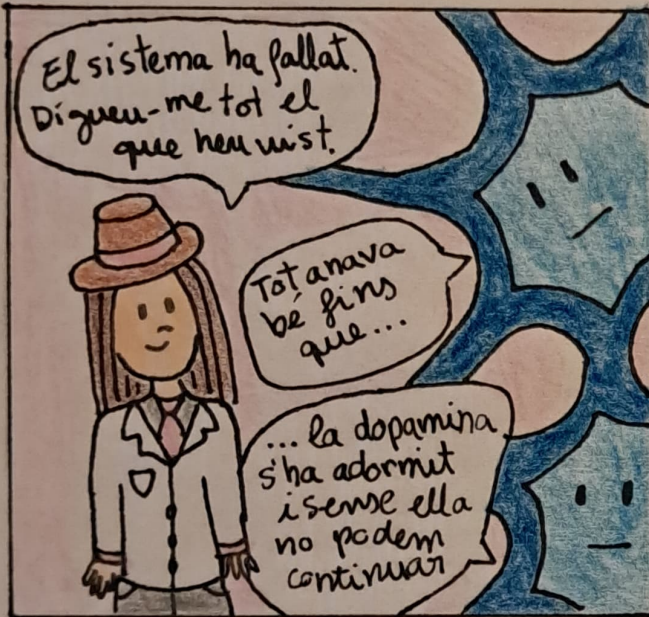 El sistema ha fallat.
Digueu-me tot el
que heu vist.
Tot anava
bé fins
que...
... la dopamina
s'ha adormit
i sense ella
no podem
continuar